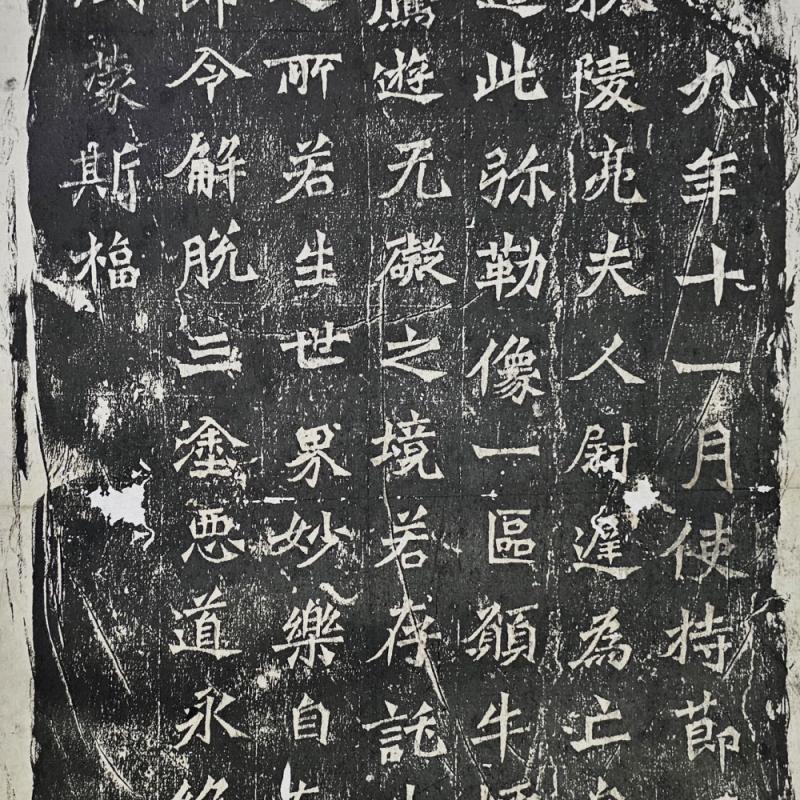 九年十一月使持節
陵亮夫人尉遲為亡
造此弥勒像一區願牛
騰遊无礙之境若存託
之所若生世界妙樂自
即令解脱三塗悪道永絶
咸蒙斯福